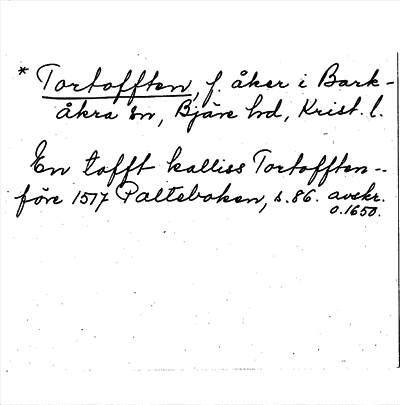 * Tortofften, f. åker i Bark-
åkra sn, Bjäre hd, Krist. l.
En tofft kalliss Tortofften --
före 1517 Palteboken, s. 86. avskr.
o. 1650.